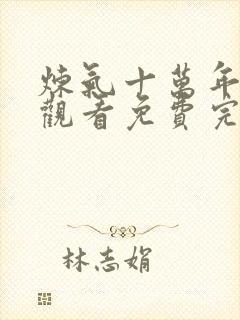 煉氣十萬年
觀看免費完
林志娟